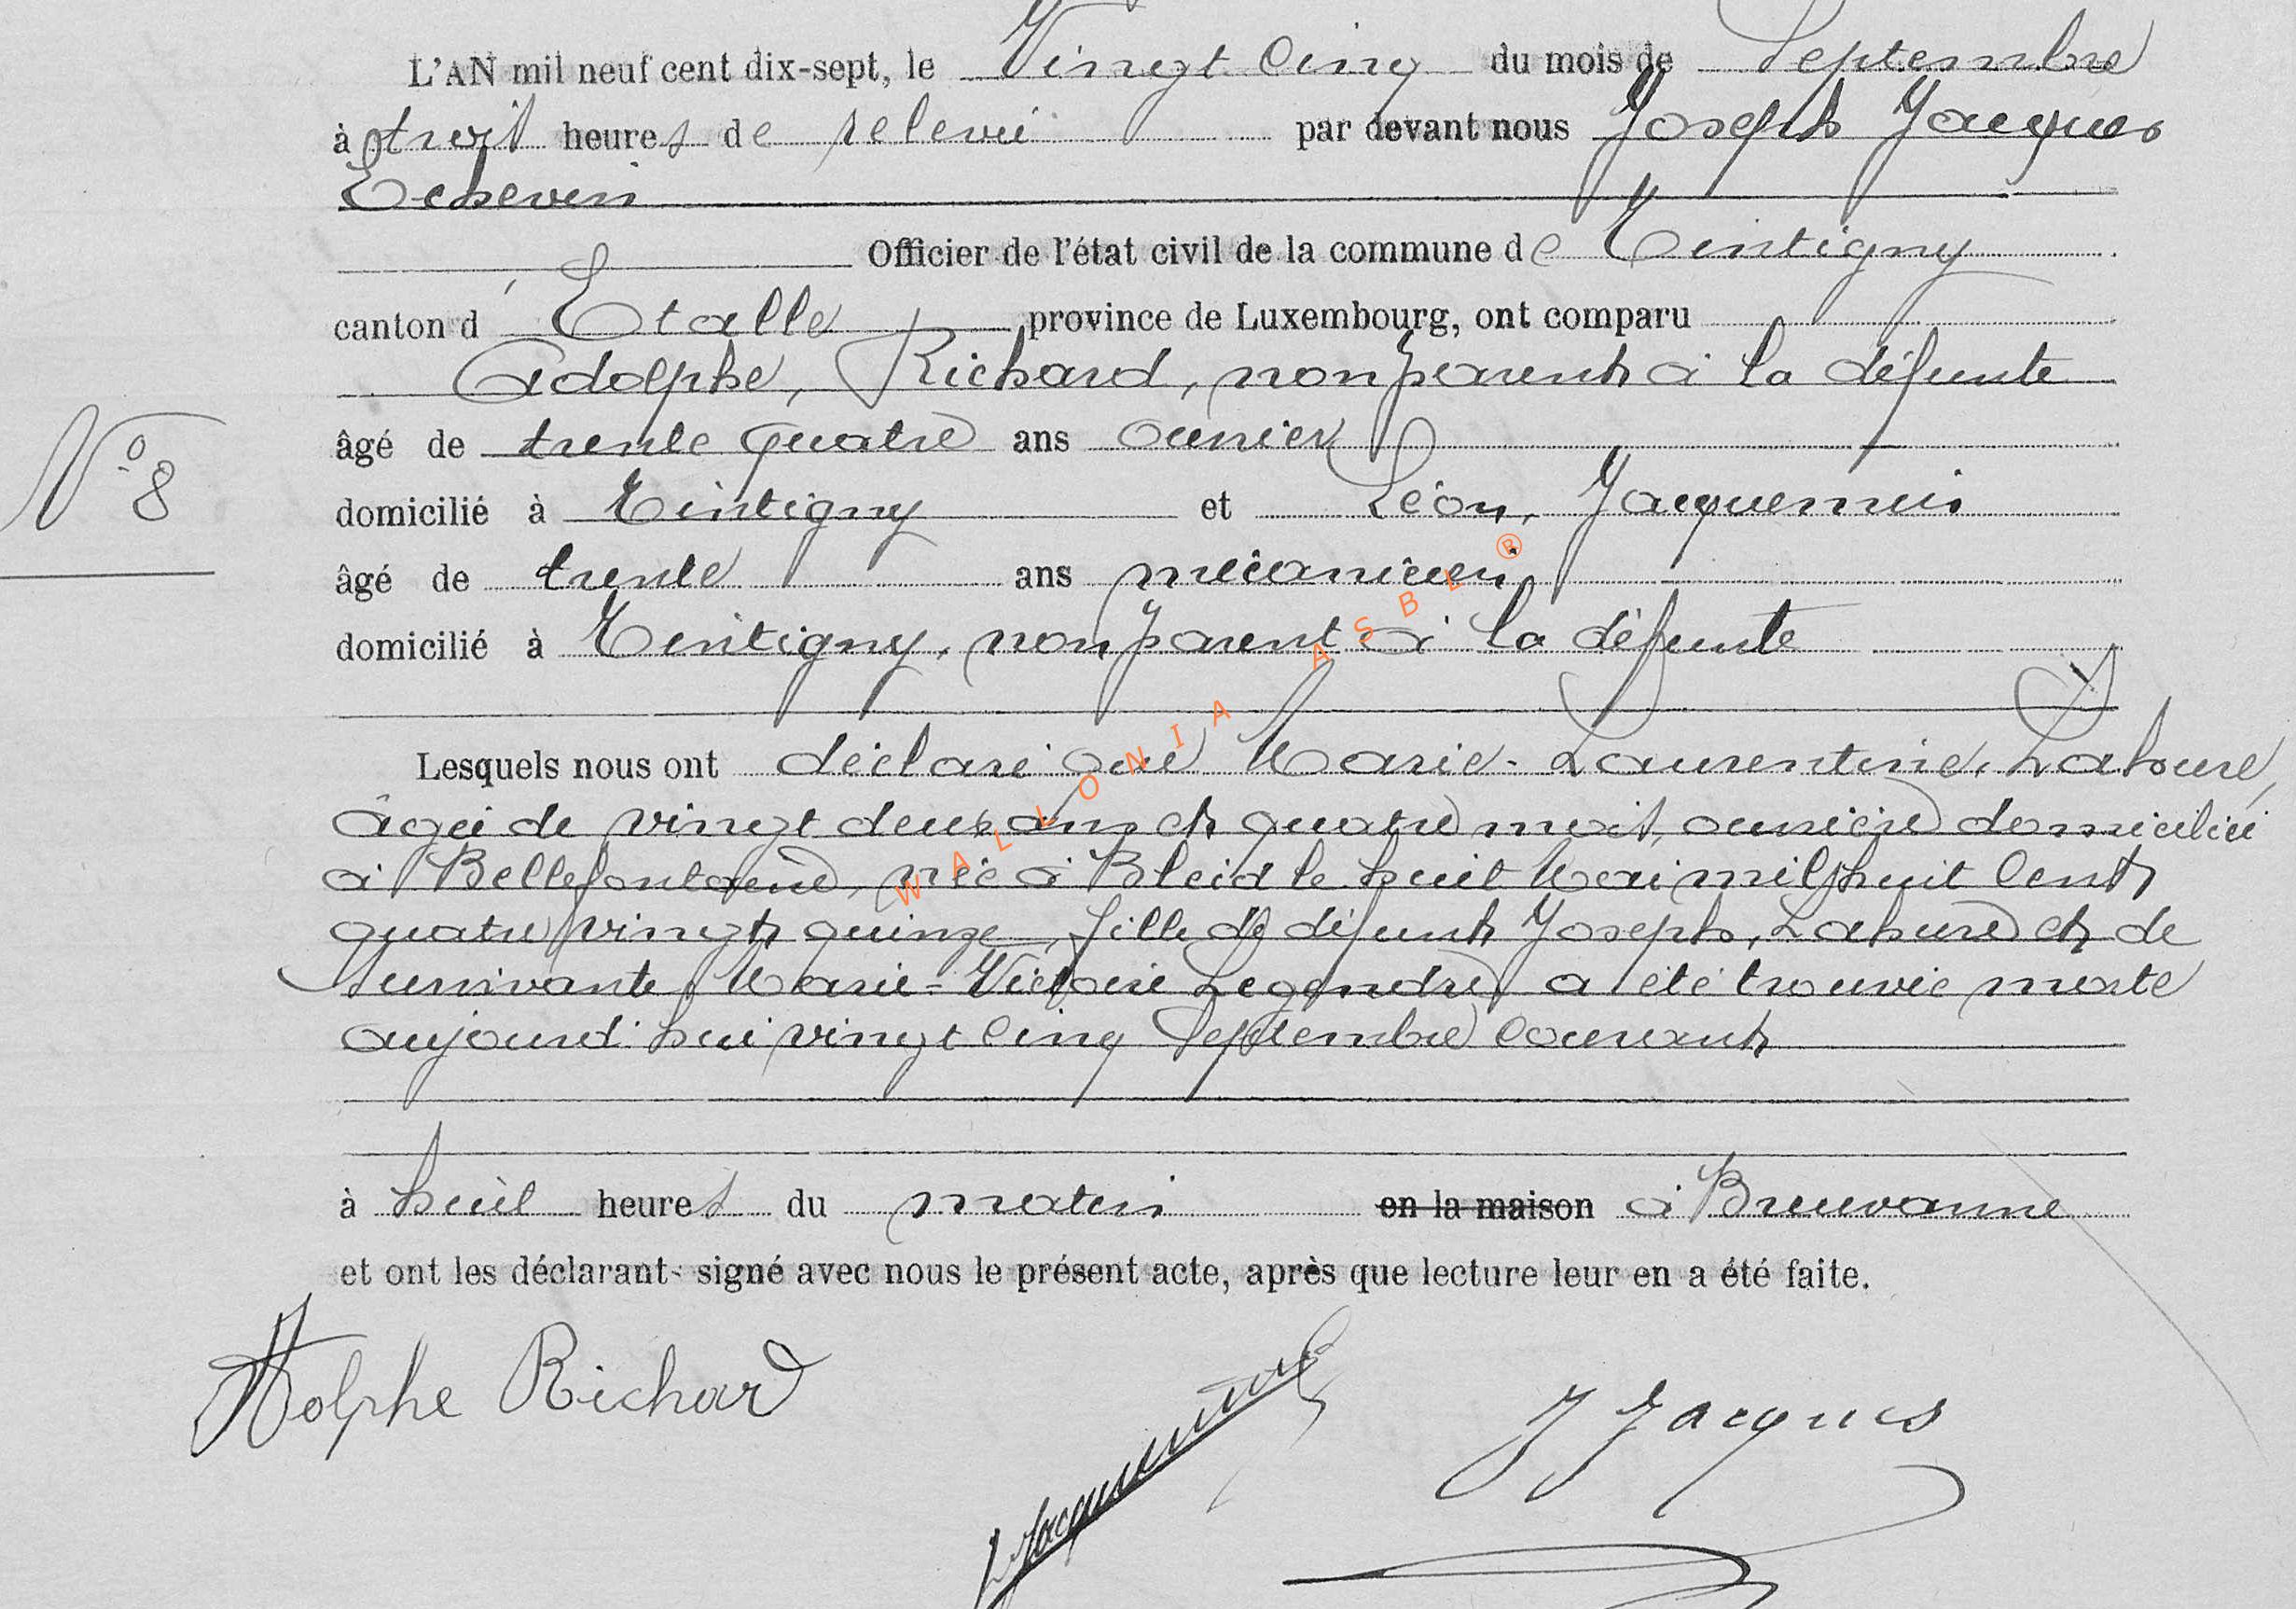 L'AN mil neuf cent dix-sept, le Vingt Cinq du mois de Septembre
à trois heures de relevée par devant nous Joseph Jacques
Echevin
Officier de l'état civil de la commune de Tintigny
canton d'Etalle province de Luxembourg, ont comparu
Adolphe, Richard, non parent à la défunte
N° 8
âgé de trente quatre ans ouvrier
domicilié à Tintigny et Léon, Jacquemin
âgé de trente ans mécanicien
domicilié à Tintigny, non parent à la défunte
Lesquels nous ont déclaré que Marie-Laurentine, Lahure,
âgée de vingt deux ans et quatre mois, ouvrière domiciliée
à Bellefontaine, née à Bleid le huit Mai mil huit Cent
quatre vingt quinze, fille de défunt Joseph, Lahure et de
survivante Marie-Victoire Legendre a été trouvée morte
aujourd'hui vingt Cinq Septembre Courant
à huit heures du matin en la maison à Breuvanne
et ont les déclarant signé avec nous le présent acte, après que lecture leur en a été faite.
Adolphe Richard
L Jacquemin
J Jacques
WALLONIA ASBL ®